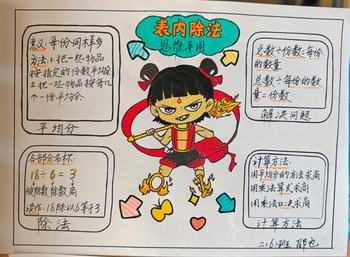 表内除法
思维导图
意义:每份同样多
方法:1.把一些物品
按指定的份数平均分
2.把一些物品按每几
个一份平均分
平均分
总数÷份数=每份
的数量
总数÷每份的数
量=份数
解决问题
各部分名称:
18÷6=3
被除数 除数 商
读作:18除以6等于3
除法
计算方法:
用平均分的方法求商
用乘法算式求商
用乘法口决求商
计算方法
二(6)班